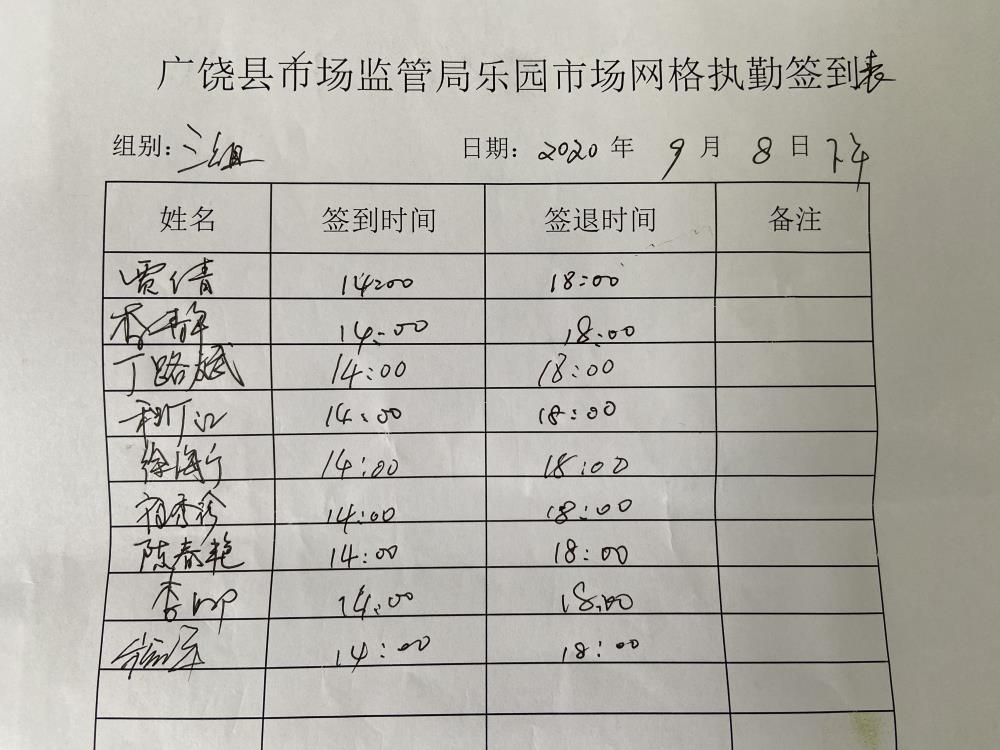 广饶县市场监管局乐园市场网格执勤签到表
组别：三组 日期：2020 年 9 月 8 日 下午
姓名 签到时间 签退时间 备注
贾倩 14:00 18:00
李静 14:00 18:00
丁路斌 14:00 18:00
14:00 18:00
徐海宁 14:00 18:00
14:00 18:00
陈春艳 14:00 18:00
李 14:00 18:00
14:00 18:00